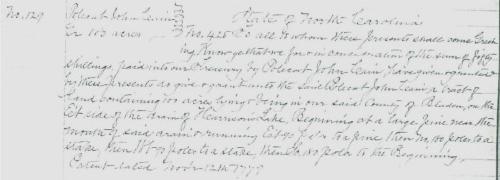 No. 129
Polecat John Lewis State of North Carolina
Gr 100 acres No. 425 To all to whom these presents shall come Greet
ing Know ye that we for & in consideration of the sum of fifty
shillings, paid into our Treasury by Polecat John Lewis, have given & granted
by these presents do give & grant unto the said Polecat John Lewis a tract of
Land containing 100 acres lying & being in our said County of Bladen, on the
Et side of the drain of Lake, Beginning at a large pine near the
mouth of said drain & running Et to a pine then No, poles to a
stake, then Wt poles to a stake, then So, poles to the Beginning,
Patent dated Novr 12th